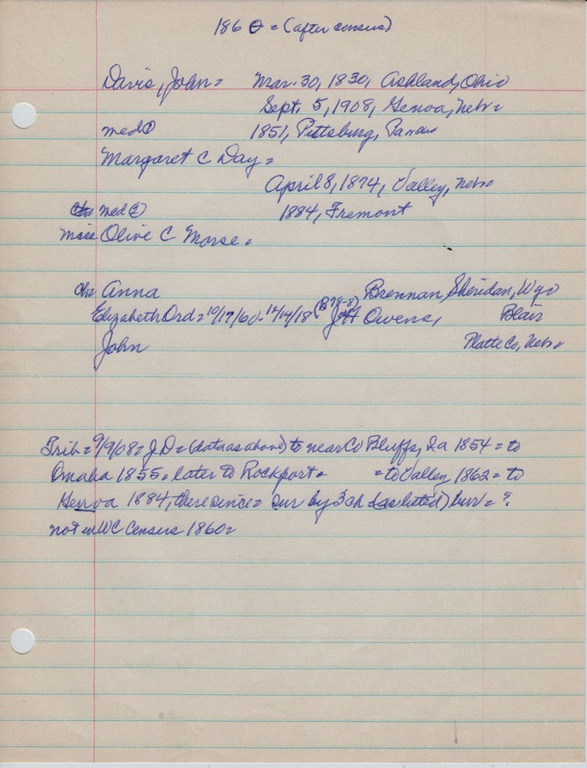 1860 = (after census)
Davis, John = Mar. 30, 1830, Ashland, Ohio
Sept. 5, 1908, Genoa, Nebr =
med ① 1851, Pittsburg, Penna
Margaret C Day =
April 8, 1874, Valley, Nebr
med ② 1884, Fremont
Miss Olive C Morse =
ch = Anna Brennan, Sheridan, Wyo
Elizabeth Ord = 10/17/60 - 12/14/18 (B 78-8) Jeff Owens, Blair
John Platte Co, Nebr
Trib = 9/9/08 = J D = (data as above) to near Co Bluffs, Ia 1854 = to
Omaha 1855 = later to Rockport = = to Valley, 1862 = to
Genoa 1884, there since = sur by 3 ch (as listed) bur = ?
not in WC Census 1860 =